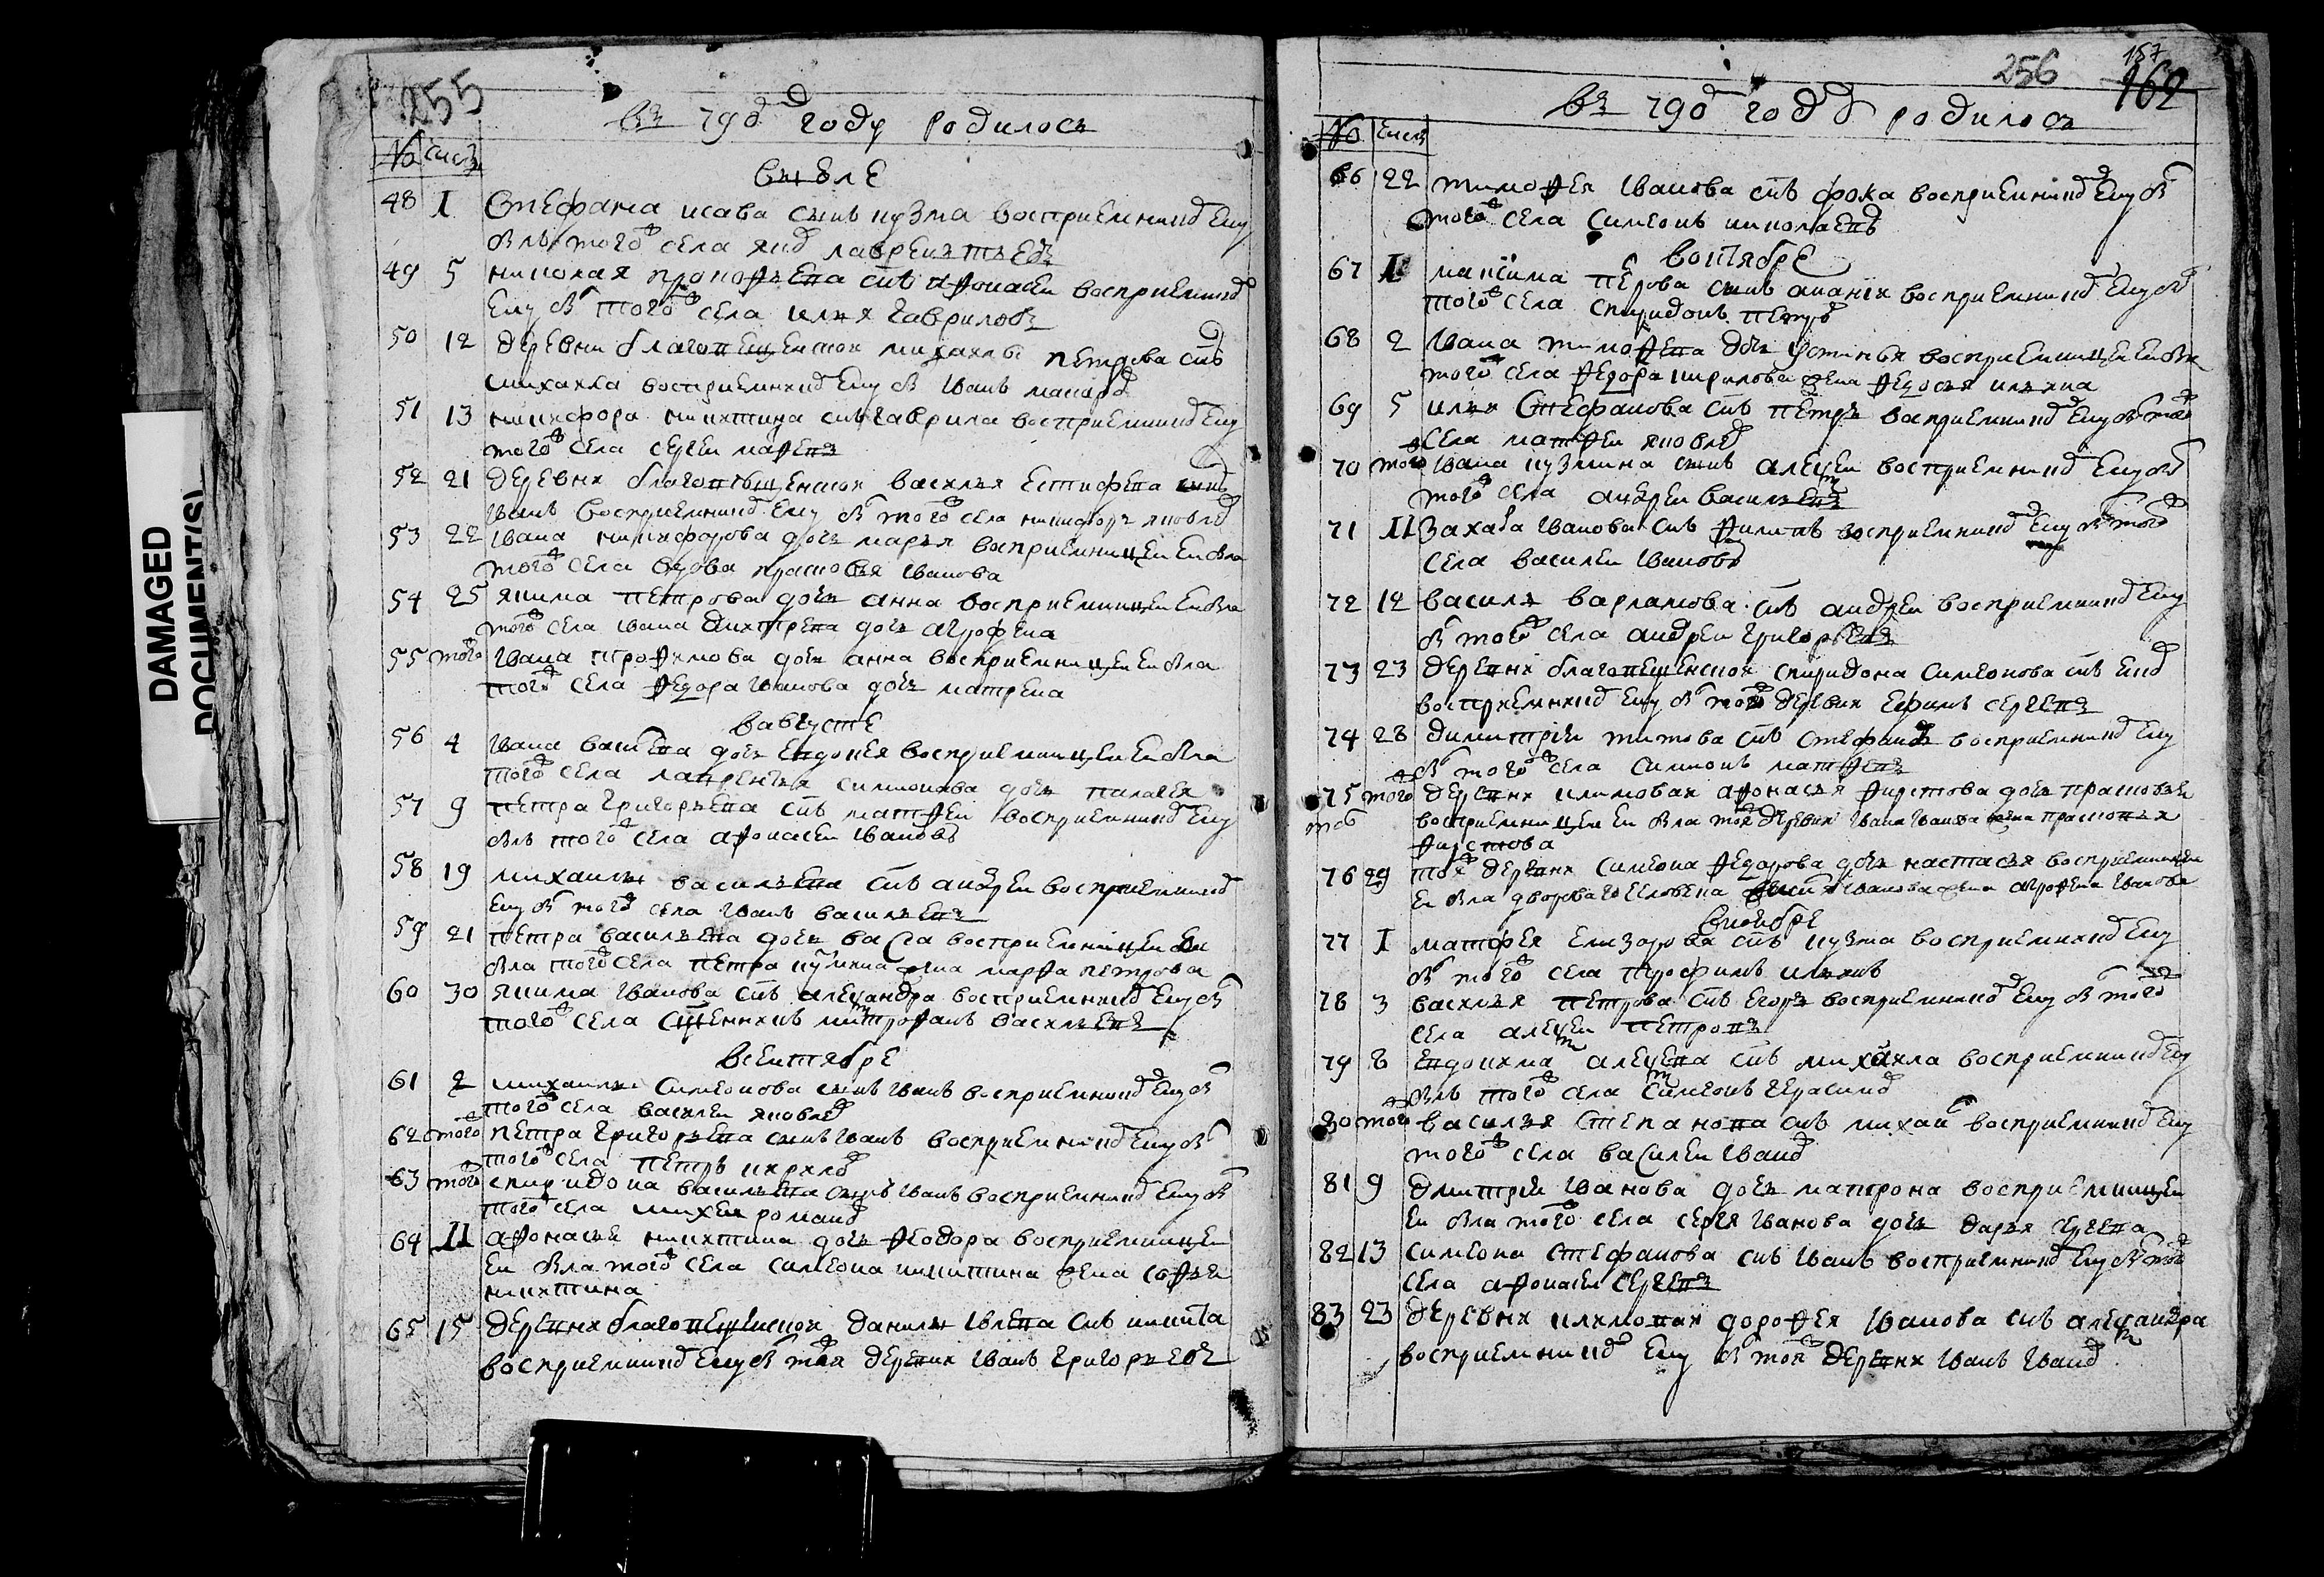 255
въ 790 году родилось
№ числ
въ июле
48 1 Стефана исава сынъ кузма восприемникъ ему
былъ того села яков лаврентьевъ
49 5 николая прокофьева снъ афонасеи восприемник
ему бы того села илья гаврилов
50 12 деревни благовещенской михаилы петрова снъ
михаила восприемник ему бы иванъ макаров
51 13 никифора никитина снъ гаврила восприемник ему
того села сергеи мафевъ
52 21 деревни благовещенской василья естифева снъ
иванъ восприемник ему бы того села никифоръ яковлев
53 22 ивана никифорова дочь марья восприемницеи еи была
того села вдова прасковья иванова
54 25 якима петрова дочь анна восприемницеи еи была
того села ивана дмитрева дочь агрофена
55 того ивана трофимова дочь анна восприемницеи еи была
того села федора иванова дочь матрена
в августе
56 4 ивана дочь евдокея восприемницеи еи была
того села лаврентья симионова дочь палагея
57 9 петра григорьева снъ матфеи восприемник ему
былъ того села афонасеи иванов
58 19 михаилы васильева снъ андреи восприемник
ему бы того села иванъ васильевъ
59 21 петра васильева дочь васса восприемницеи еи
была того села петра кузмина жена марфа петрова
60 30 якима иванова снъ александра восприемник ему бы
того села сщенникъ митрофанъ васильевъ
в сентябре
61 2 михаилы симеонова сынъ иванъ восприемник ему бы
того села василеи яковлев
62 того петра григорьева сынъ иванъ восприемник ему бы
того села петръ кирилов
63 того спиридона васильева сынъ иванъ восприемник ему бы
того села михеи романов
64 11 афонасья никитина дочь феодора восприемницеи
еи была того села симеона никитина жена софья
никитина
65 15 деревни благовещенской данилы ивлева снъ никита
восприемник ему бы тоя деревни иванъ григорьевъ
256 157
162
въ 790 году родилось
№ числ
66 22 тимофея иванова снъ фока восприемник ему бы
того села симеонъ николаевъ
в октябре
67 1 максима перова сынъ ананія восприемник ему бы
того села спиридонъ петров
68 2 ивана тимофева дочь устинья восприемницеи еи была
того села федора кирилова жена федосья ильина
69 5 илья стефанова снъ петръ восприемник ему бы того
села матфеи яковлев
70 того ивана кузмина сынъ алексеи восприемник ему бы
того села андреи васильевъ
71 11 захара иванова снъ филипъ восприемник ему бы того
села василеи ивановъ
72 12 василья варламова снъ андреи восприемник ему
бы того села андреи григорьевъ
73 23 деревни благовещенской спиридона симеонова снъ
восприемник ему бы тоя деревни ефимъ сергевъ
74 28 димитріи титова снъ стефанъ восприемник ему
бы того села симионъ матфевъ
75 того деревни климовки афонасья фирстова дочь прасковьи
восприемницеи еи была тоя деревни ивана иванова жена прасковья
фирстова
76 29 тоя деревни симеона федорова дочь настасья восприемницеи
еи была дворова человека иванова жена агрофена иванова
в ноябре
77 1 матфея елизарова снъ кузма восприемник ему
бы того села трофимъ ильинъ
78 3 василья петрова снъ егоръ восприемник ему бы того
села алексеи петровъ
79 8 евдокима алексева снъ михаила восприемник ему
былъ того села симеонъ герасимов
80 того василья степанова снъ михаи восприемник ему
того села василеи иванов
81 9 дмитріи иванова дочь матрона восприемницеи
еи была того села сергея иванова дочь дарья сергева
82 13 симеона стефанова снъ иванъ восприемник ему бы того
села афонасеи сергевъ
83 23 деревни климовки дорофея иванова снъ александра
восприемник ему бы тоя деревни иванъ иванов
DAMAGED
DOCUMENT(S)